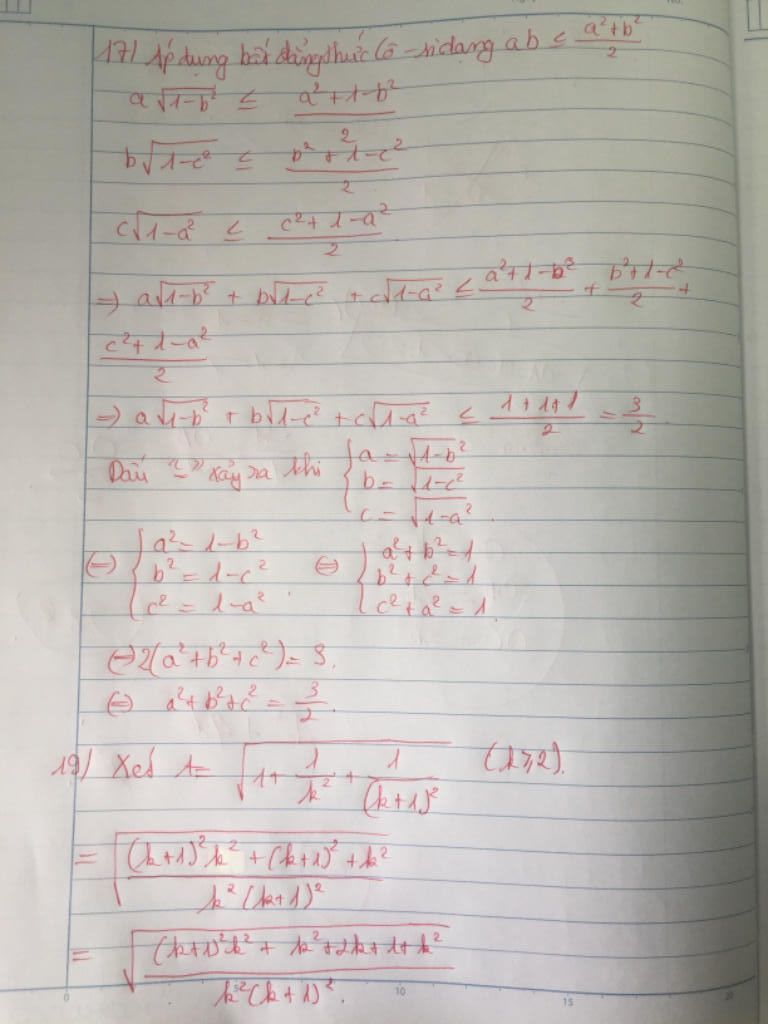 17/ Áp dụng bất đẳng thức Cô-si dạng ab ≤ (a²+b²)/2
a√(1-b²) ≤ (a²+1-b²)/2
b√(1-c²) ≤ (b²+1-c²)/2
c√(1-a²) ≤ (c²+1-a²)/2
=> a√(1-b²) + b√(1-c²) + c√(1-a²) ≤ (a²+1-b²)/2 + (b²+1-c²)/2 +
(c²+1-a²)/2
=> a√(1-b²) + b√(1-c²) + c√(1-a²) ≤ (1+1+1)/2 = 3/2
Dấu "=" xảy ra khi { a = √(1-b²)
b = √(1-c²)
c = √(1-a²).
<=> { a² = 1-b² <=> { a²+b²=1
b² = 1-c² b²+c²=1
c² = 1-a². c²+a²=1
<=> 2(a²+b²+c²) = 3.
<=> a²+b²+c² = 3/2.
19/ Xét A = √(1 + 1/k² + 1/(k+1)²) (k≥2).
= √(((k+1)²k² + (k+1)² + k²)/(k²(k+1)²))
= √(((k+1)²k² + k²+2k+1+k²)/(k²(k+1)²)).
0 5 10 15 20